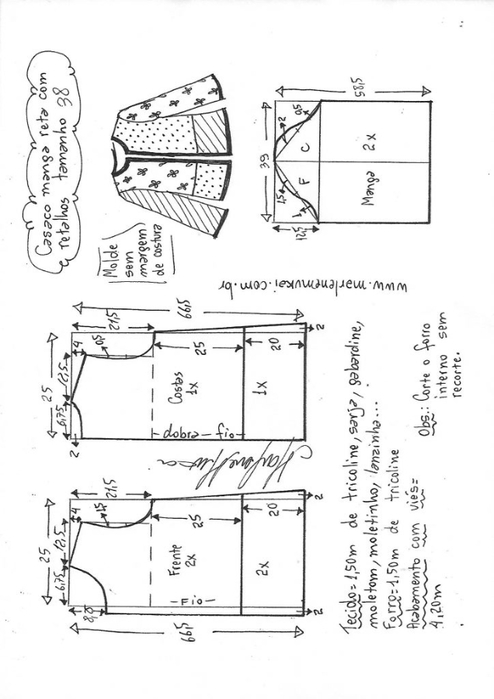 Casaco manga reta com
retalhos tamanho 38
Molde
sem
margem
de costura
39
58,5
12,5
1,5
1
2
0,5
F
C
Manga
2x
www.marlenemukai.com.br
25
6,75
12,5
4
21,5
66,5
0,5
2
Costas
1x
25
dobra - fio
1x
20
2
25
6,75
12,5
4
21,5
66,5
1,5
8,0
Frente
2x
25
Fio
2x
20
2
Tecido=1,50m de tricoline, sarja, gabardine,
moletom, moletinho, lanzinha...
Forro=1,50m de tricoline
Acabamento com viés=
4,20m
Obs.: Corte o forro
interno sem
recorte.